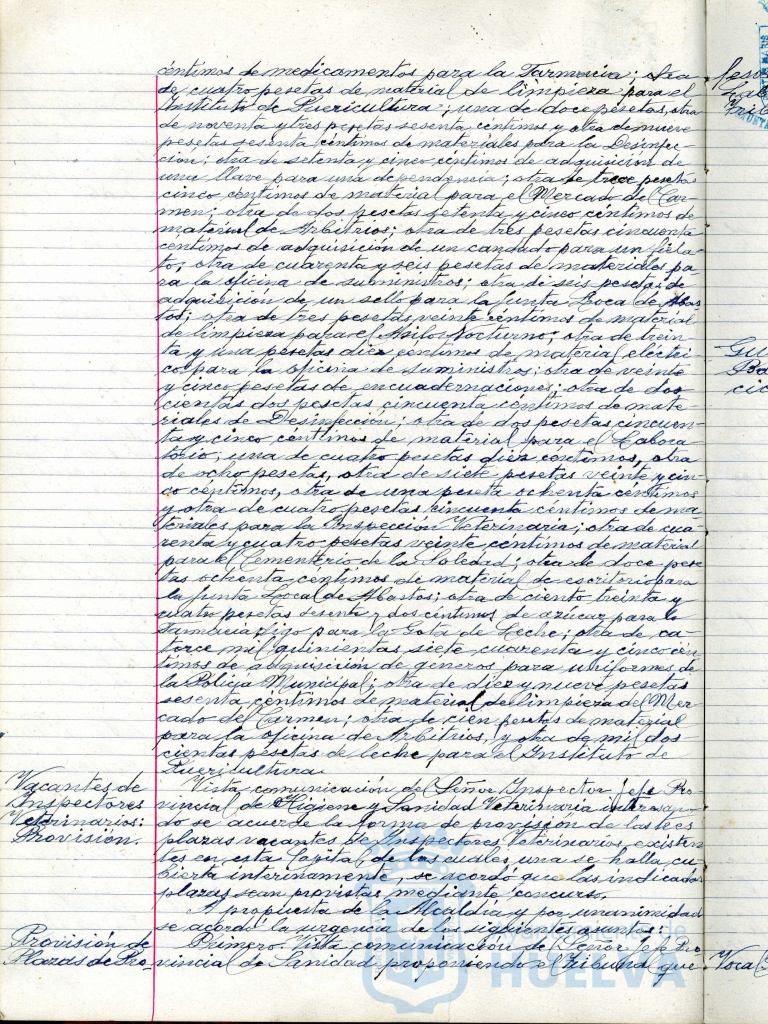 céntimos de medicamentos para la Farmacia; otra
de cuatro pesetas de material de limpieza para el
Instituto de Puericultura; una de doce pesetas, otra
de noventa y tres pesetas sesenta céntimos y otra de nueve
pesetas sesenta céntimos de materiales para la Desinfec-
ción; otra de setenta y cinco céntimos de adquisición de
una llave para una dependencia; otra de trece pesetas
cinco céntimos de material para el Mercado del Car-
men; otra de dos pesetas setenta y cinco céntimos de
material de Arbitrios; otra de tres pesetas cincuenta
céntimos de adquisición de un candado para un fiela-
to; otra de cuarenta y seis pesetas de materiales pa-
ra la oficina de suministros; otra de seis pesetas de
adquisición de un sello para la Junta Local de Abas-
tos; otra de tres pesetas veinte céntimos de material
de limpieza para el Asilo Nocturno; otra de trein-
ta y una pesetas diez céntimos de material eléctri-
co para la oficina de suministros; otra de veinte
y cinco pesetas de encuadernaciones; otra de dos
cientas dos pesetas cincuenta céntimos de mate-
riales de Desinfección; otra de dos pesetas cincuen-
ta y cinco céntimos de material para el Labora-
torio; una de cuatro pesetas diez céntimos, otra
de ocho pesetas, otra de siete pesetas veinte y cin-
co céntimos, otra de una peseta ochenta céntimos
y otra de cuatro pesetas cincuenta céntimos de ma-
teriales para la Inspección Veterinaria; otra de cua-
renta y cuatro pesetas veinte céntimos de material
para el Cementerio de la Soledad; otra de doce pese-
tas ochenta céntimos de material de escritorio para
la Junta Local de Abastos; otra de ciento treinta y
cuatro pesetas sesenta y dos céntimos de azúcar para la
Farmacia digo para la Gota de Leche; otra de ca-
torce mil quinientas siete cuarenta y cinco cén-
timos de adquisición de géneros para uniformes de
la Policía Municipal; otra de diez y nueve pesetas
sesenta céntimos de material de limpieza del Mer-
cado del Carmen; otra de cien pesetas de material
para la oficina de Arbitrios, y otra de mil dos
cientas pesetas de leche para el Instituto de
Puericultura.
Vacantes de
Inspectores
Veterinarios:
Provisión.
Vista comunicación del Señor Inspector Jefe Pro-
vincial de Higiene y Sanidad Veterinaria interesan-
do se acuerde la forma de provisión de las tres
plazas vacantes de Inspectores Veterinarios, existen-
tes en esta Capital, de las cuales una se halla cu-
bierta interinamente, se acordó que las indicadas
plazas sean provistas mediante concurso.
A propuesta de la Alcaldía y por unanimidad
se acordó la urgencia de los siguientes asuntos:
Provisión de
Plazas de Pro-
Primero. Vista comunicación del Señor Jefe Pro
vincial de Sanidad proponiendo el Tribunal que
HUELVA